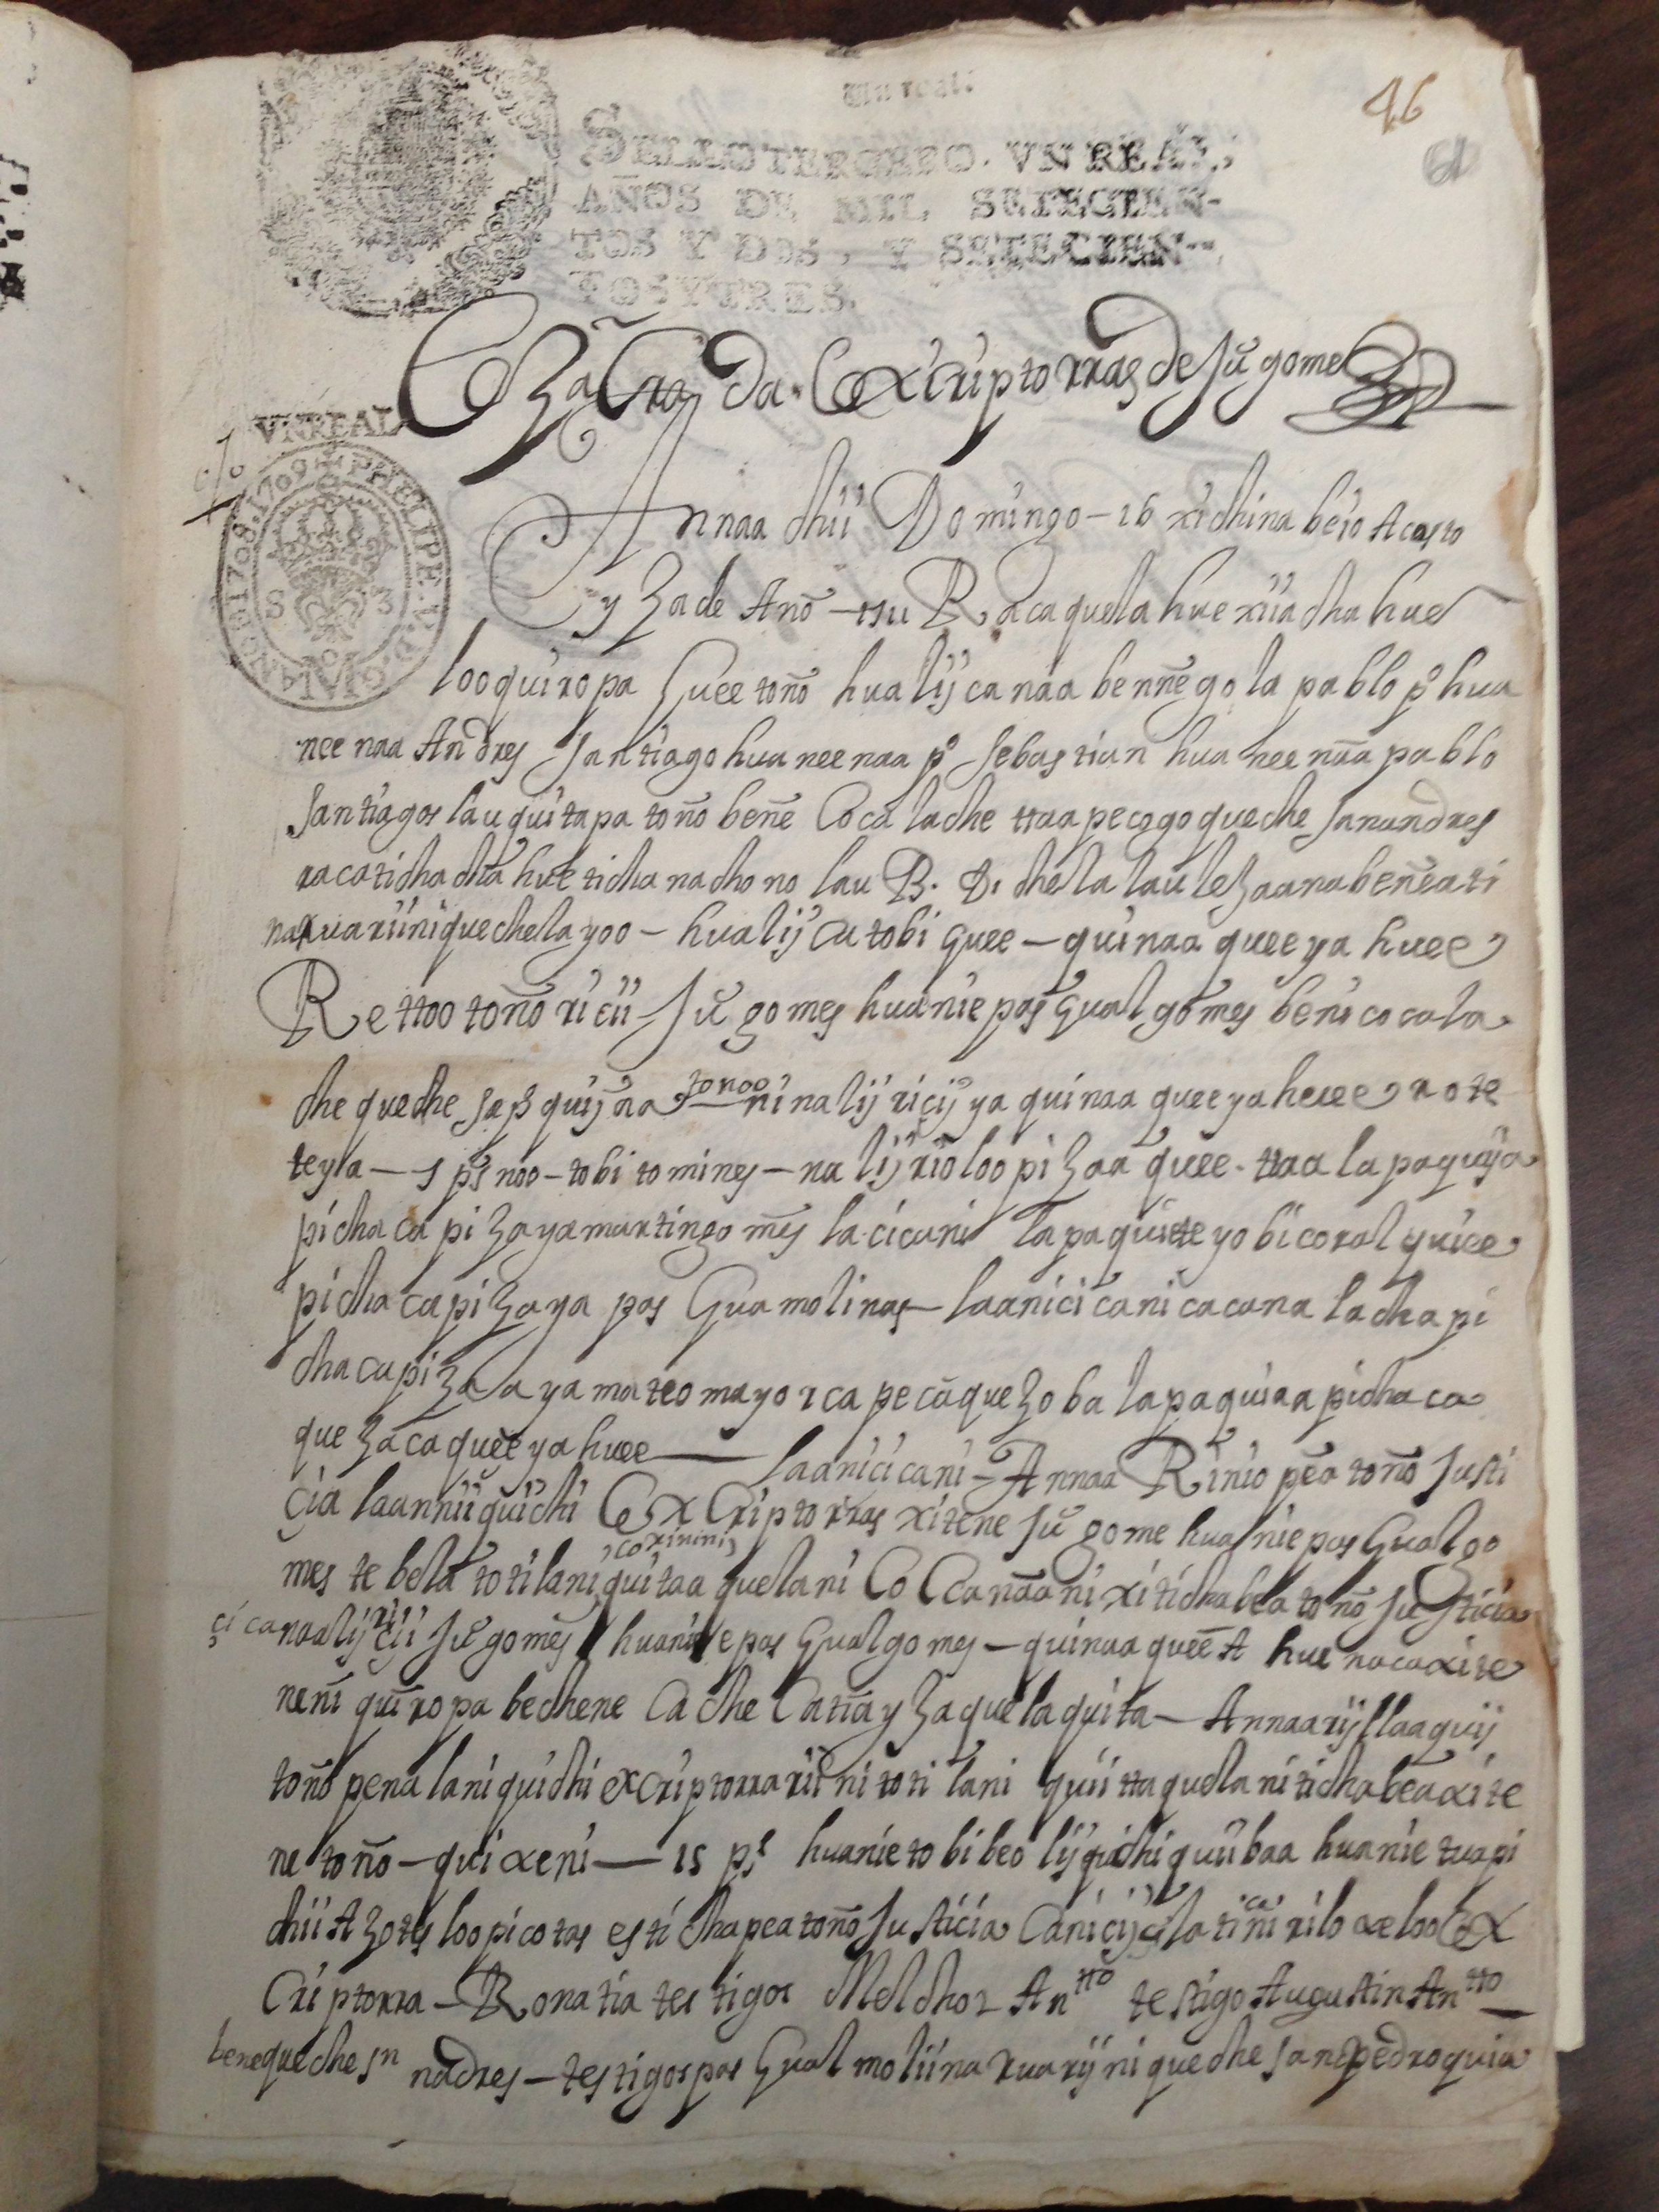 Un real.
46
61
SELLO TERCERO. VN REAL,
AÑOS DE MIL SETECIEN-
TOS Y DOS, Y SETECIEN-
TOS Y TRES.
Carta da Excriptorras de Ju° gomez
VN REAL
PHELIPE. V. D. G. HISPANIAR 1708. 1709
S 3
Annaa chii Domingo - 16 xichina beio Acosto
y Za de Año - 1711 Racaquela hue xiia cha hue
loo quiropa Guee toño hualij ca naa beñne gola pablo p° hua
nee naa Andres Santiago hua nee naa p° Sebastian hua nee naa pablo
Santiagos lau quitapa toño beñe Coca lache ttaa pecogo queche San andres
racaticha cha hue ticha nachono lau B. D. chela lau leZaana beñe ati
naxuariini quechela yoo - hualij ca tobi Guee - quinaa quee ya huee
Rettoo toño ricii Ju° gomes huanie pasGual gomes beni coca la
che queche sa p° quijña tonoo ni nalij ricij ya quinaa quee ya heuee rote
teyla - 5 ps noo - tobi tomines - na lij rio loo piZaa quee. ttaa lapaquija
picha ca piZaya martin gomes la.cicani lapaquiete yobicoral quiee
picha ca piZaya pas Gua molinas - laanicicani cacana lacha pi
cha ca piZaa ya mateo mayorca pecaqueZoba lapaquiaa pichaca
que Zaca quee ya huee — laanicicani - Annaa Rinio pea toño Justi
cia laannii quichi Excriptorras xitene Ju° gome hua nie pasGual go
corinini
mes te bela toti lani quitaa quelani CoCanaa ni xitichabea toño Justicia
cicanaalij ricii Ju° gomes huanie pasGual gomes - quinaa quee A hue nacaxite
neñi quiropa bechene Cache Catiia y Zaquelaquita - Annaarij llaaquij
toño pena lani quichi excriptorra riini toti lani quiittaquela ni tichabea xite
ne toño - quixeni — 15 ps huanie tobi beo lij quichi quiibaa huanie tuapi
chii AZotes loo picotas es ticha pea toño Justicia Canicij cilatini rilo xeloo Ex
Criptorra - Ronatia testigos Melchor Antto testigo Augustin Antto
bene queche Sn nadres - testigos pasGual moliina ruarijni queche San pedro quia